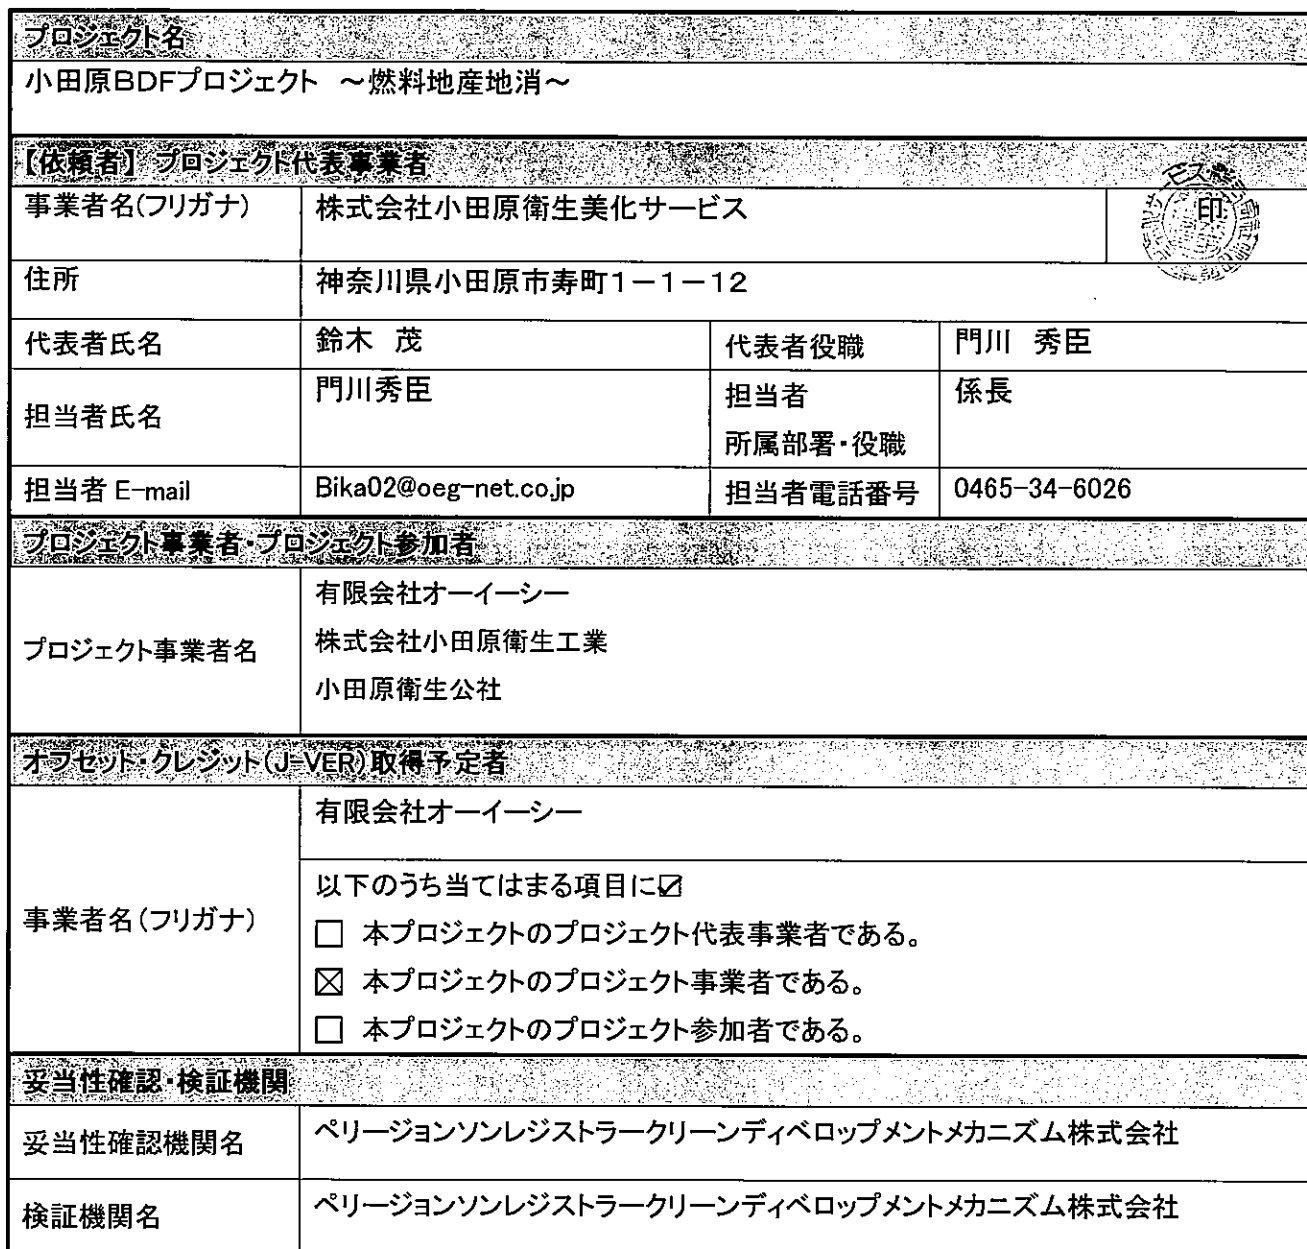 プロジェクト名
小田原BDFプロジェクト ～燃料地産地消～
【依頼者】 プロジェクト代表事業者
事業者名(フリガナ) 株式会社小田原衛生美化サービス 印
住所 神奈川県小田原市寿町1－1－12
代表者氏名 鈴木 茂 代表者役職 門川 秀臣
担当者氏名 門川秀臣 担当者 係長
所属部署・役職
担当者 E-mail Bika02@oeg-net.co.jp 担当者電話番号 0465-34-6026
プロジェクト事業者・プロジェクト参加者
プロジェクト事業者名
有限会社オーイーシー
株式会社小田原衛生工業
小田原衛生公社
オフセット・クレジット(J-VER)取得予定者
事業者名(フリガナ)
有限会社オーイーシー
以下のうち当てはまる項目に☑
□ 本プロジェクトのプロジェクト代表事業者である。
☒ 本プロジェクトのプロジェクト事業者である。
□ 本プロジェクトのプロジェクト参加者である。
妥当性確認・検証機関
妥当性確認機関名 ペリージョンソンレジストラークリーンディベロップメントメカニズム株式会社
検証機関名 ペリージョンソンレジストラークリーンディベロップメントメカニズム株式会社